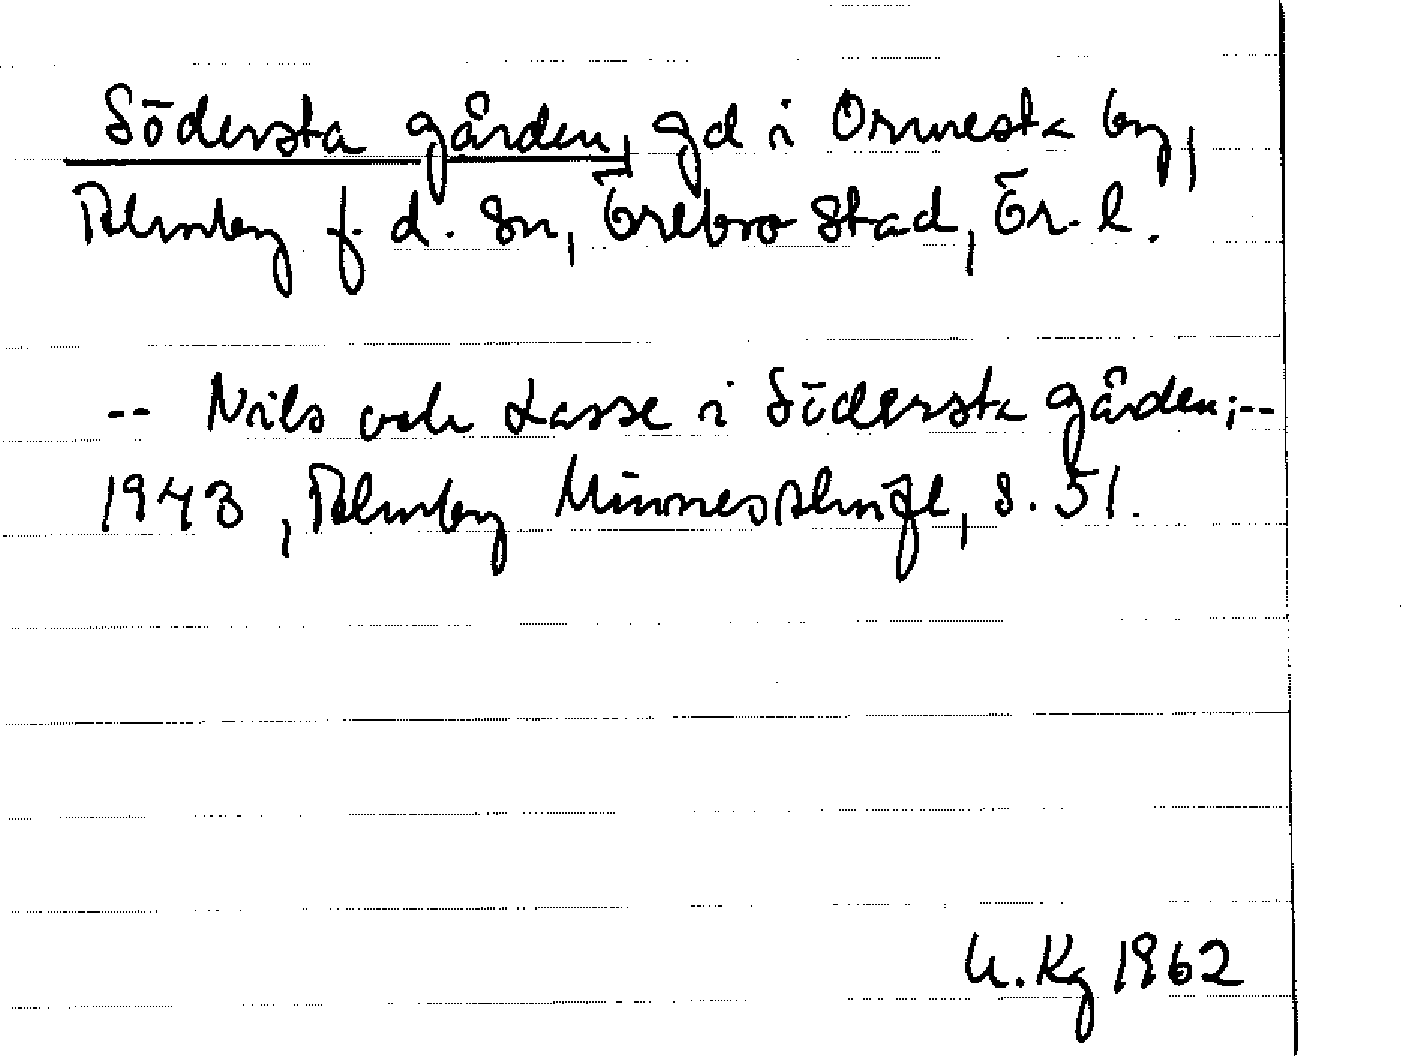 Södersta gården, gd i Ormesta by,
Almby f. d. sn, Örebro stad, Ör. l.
-- Nils och Lasse i Södersta gården;--
1943, Almby Minnesalmfl, s. 51.
U. Kg 1962